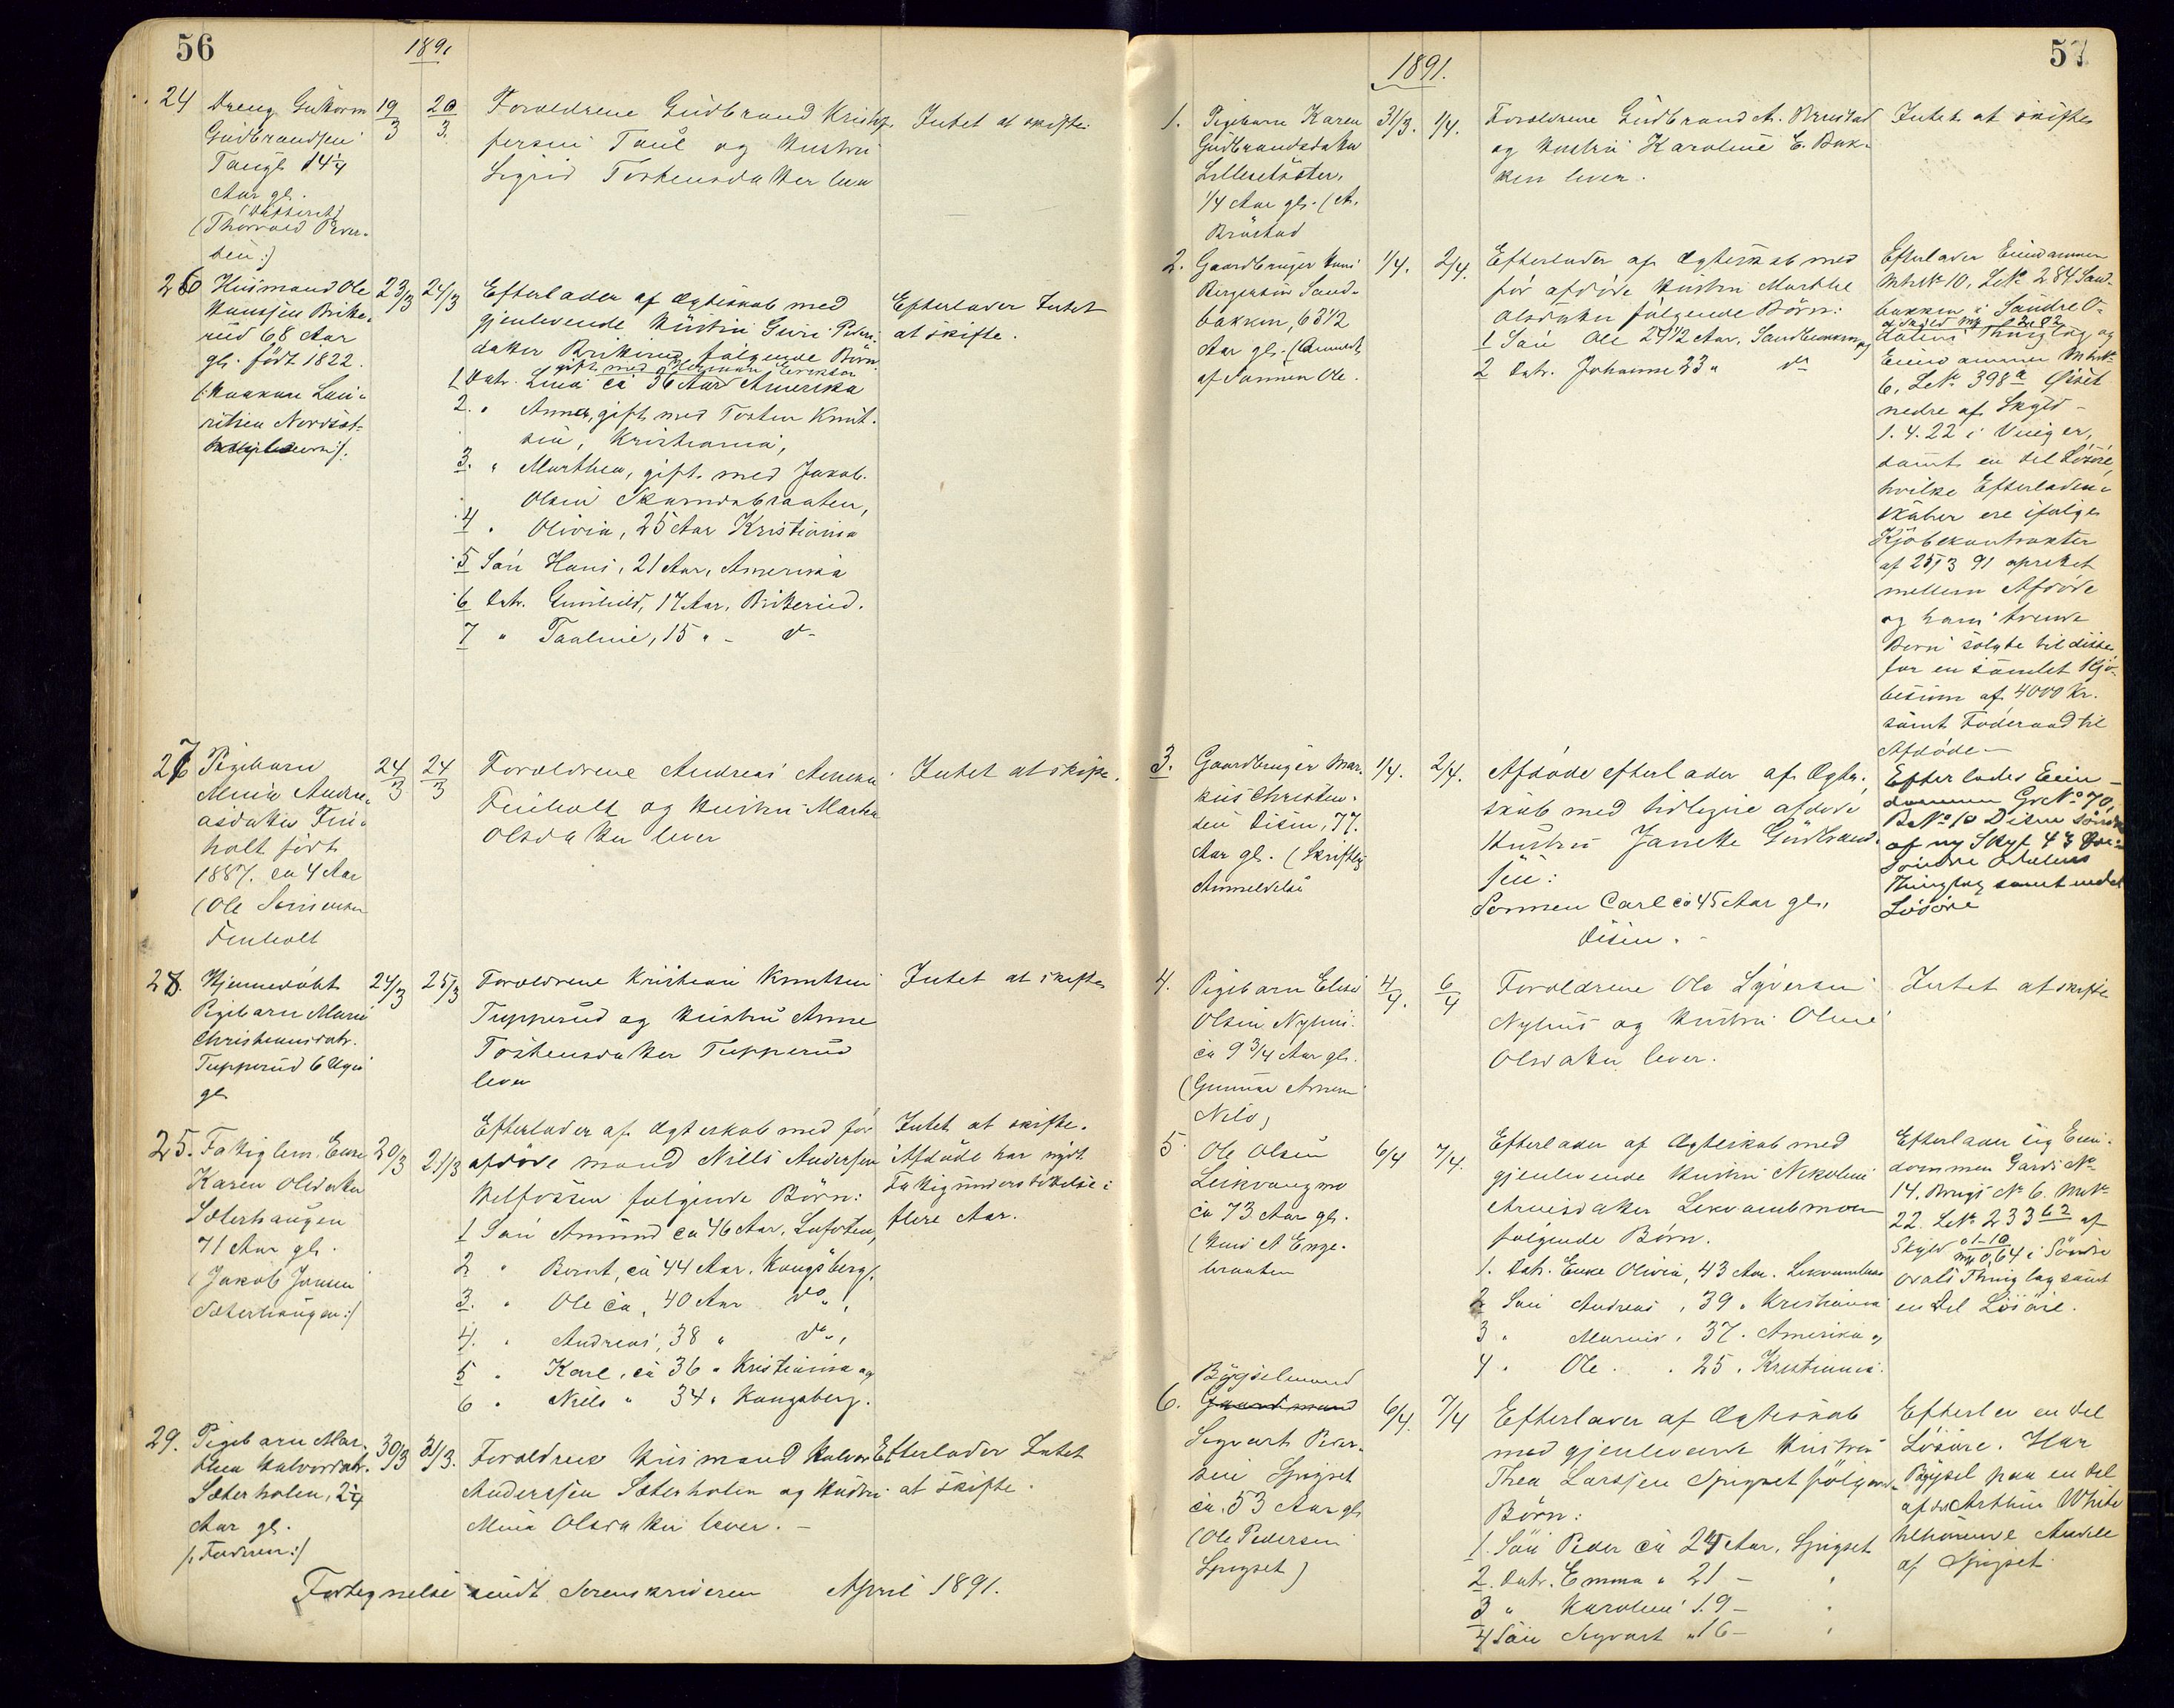 56
1891
24
Dreng Guttorm
Gudbrandsen
Taugl 14 1/4
Aar gl.
(Thorvald Peder-
sen:)
19/3
20/3
Forældrene Gudbrand Kristof-
fersen Taul og Hustru
Sigrid Tostensdatter lever
Intet at skifte
26
Husmand Ole
Hanssen Britte-
rud 68 Aar
gl. født 1822.
(Haakon Lau-
ritsen Nordset-
23/3
24/3
Efterlader af Ægteskab med
gjenlevende Hustru Guri Peders-
datter Britterud følgende Børn
gift med Herman Eriksen
1 Datr. Lina ca 36 Aar Amerika
2. " Anna, gift med Tosten Knut-
sen, Kristiania,
3. " Marthea, gift med Jakob
Olsen Skarndsbraaten,
4 " Olivia, 25 Aar Kristiania
5 Søn Hans, 21 Aar, Amerika
6 Datr. Gunhild, 17 Aar, Britterud.
7 " Pauline, 15 " - do
Efterlader Intet
at skifte.
27
Pigebarn
Mina Andre-
asdatter Fin-
holt født
1887. ca 4 Aar
(Ole
Finholt
24/3
24/3
Forældrene Andreas
Finholt og Hustru Marthe
Olsdatter lever
Intet at skifte.
28.
Hjemmedøbt
Pigebarn Marie
Christiansdatr.
Tupperud 6 Uger
gl
24/3
25/3
Forældrene Kristian Knutsen
Tupperud og Hustru Anne
Tostensdatter Tupperud
lever
Intet at skifte
25.
Fattiglem Enke
Karen Olsdatter
Sæterhaugen
71 Aar gl.
(Jakob Jonsen
Sæterhaugen:)
20/3
21/3
Efterlader af Ægteskab med før
afdøde mand Nills Andersen
Helfossen følgende Børn:
1 Søn Amund ca 46 Aar, Lofoten,
2 " Bernt, ca 44 Aar, Kongsberg,
3. " Ole ca, 40 Aar do,
4. " Andreas, 38 " do,
5 " Karl, ca 36 " Kristiania og
6 " Niels " 34 " Kongsberg.
Intet at skifte.
Afdøde har nydt
Fattigunderstøttelse i
flere Aar.
29.
Pigebarn Mar-
thea Halvorsdatr.
Sæterholen, 2 1/4
Aar gl.
/: Faderen:/
30/3
31/3.
Forældrene Husmand Halvor
Anderssen Sæterholen og Hustru
Mina Olsdatter lever. -
Efterlader Intet
at skifte.
Fortegnelse sendt Sorenskriveren April 1891.
57
1891.
1.
Pigebarn Karen
Gudbrandsdatter
Lillesetsæter,
1/4 Aar gl. (A.
Brustad
31/3.
1/4.
Forældrene Gudbrand A. Brustad
og Hustru Karoline E. Bak-
ken lever.
Intet at skifte
2.
Gaardbruger Hans
Birgersen Sand-
bakken, 63 1/2
Aar gl. (Anmeldt
af Sønnen Ole.
1/4.
2/4.
Efterlader af Ægteskab med
før afdøde Hustru Marthe
Olsdatter følgende Børn:
1 Søn Ole 24 1/2 Aar, Sandbakken og
2 Datr. Johanne 23 " do
Efterlader Eiendommen
Mtr No 10, LNo 284 Sand-
bakken i Søndre O-
dalens Thinglag og
Eiendommen Mtr No
6, LNo 398a Øiset
nedre af Skyld -
1. 4. 22 i Vinger,
samt en del Løsøre,
hvilke Efterladen-
skaber ere ifølge
Kjøbekontrakter
af 25/3 91 oprettet
mellem Afdøde
og hans tvende
Børn solgte til disse
for en samlet Kjø-
besum af 4000 Kr.
samt Føderaad til
Afdøde -
3.
Gaardbruger Mar-
kus Christen-
sen Disen, 77
Aar gl. (Skriftlig
Anmeldelse
1/4.
2/4.
Afdøde efterlader af Ægte-
skab med tidligere afdøde
Hustru Janette Gudbrand-
sen:
Sønnen Carl ca 45 Aar gl,
Disen. -
Efterlader Eien-
dommen GrNo 70,
BNo 10 Disen søndre
af ny Skyl 4 43 Øre
Søndre Odalens
Thinglag samt endel
Løsøre
4.
Pigebarn Elise
Olsen Nyhus
ca 9 3/4 Aar gl.
(Gunnar
4/4.
6/4
Forældrene Ole Syversen
Nyhus og Hustru Oline
Olsdatter lever.
Intet at skifte
5
Ole Olsen
Leikvangmo
ca 73 Aar gl.
(Hans A Enge-
braaten
6/4
7/4.
Efterlader af Ægteskab med
gjenlevende Hustru Nikoline
Arnesdatter
følgende Børn.
1. Datr. Enke Olivia, 43 Aar.
2 Søn Andreas, 39 " Kristiania
3 " Marius, 37 " Amerika og
4 " Ole " 25 " Kristiania.
Efterlader sig Eien-
dommen Gards No
14. Brugs No 6. MNo
22. LNo 233 62 af
Skyld 0-1-10
ny 0,64 i Søndre
Odals Thinglag samt
en Del Løsøre.
6.
Bygselmand
Sigvart Peder-
sen Spigset
ca. 53 Aar gl
(Ole Pedersen
Spigset)
6/4.
7/4
Efterlader af Ægteskab
med gjenlevende Hustru
Thea Larssen Spigset følgende
Børn:
1. Søn Peder ca 24 Aar, Spigset
2. Datr. Emma " 21 - "
3 " Karoline 19 - "
4 Søn Sigvart " 16 - "
Efterlev en Del
Løsøre. Har
Bygsel paa en Del
af Arthur White
tilhørende Andele
af Spigset.